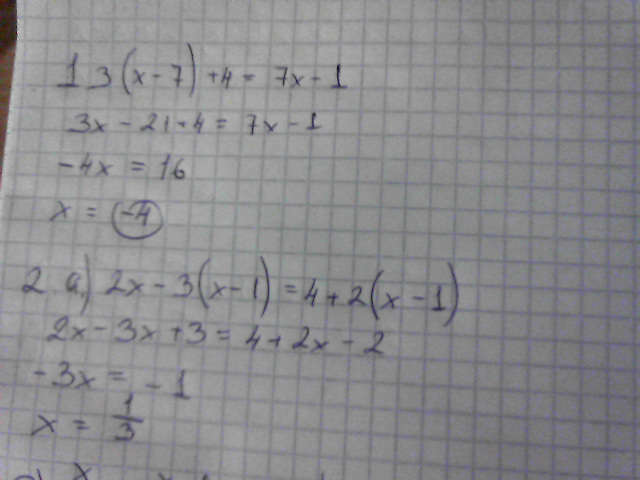 1 3(x-7)+4= 7x-1
3x-21+4= 7x-1
-4x = 16
x = -4
2 a) 2x-3(x-1)=4+2(x-1)
2x-3x+3=4+2x-2
-3x= -1
x = 1/3